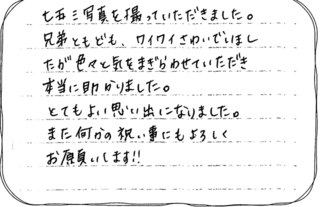 七五三写真を撮っていただきました。
兄弟ともども、ワイワイさわいでしまし
たが色々と気をまぎらわせていただき
本当に助かりました。
とてもよい思い出になりました。
また何かの祝い事にもよろしく
お願いします!!